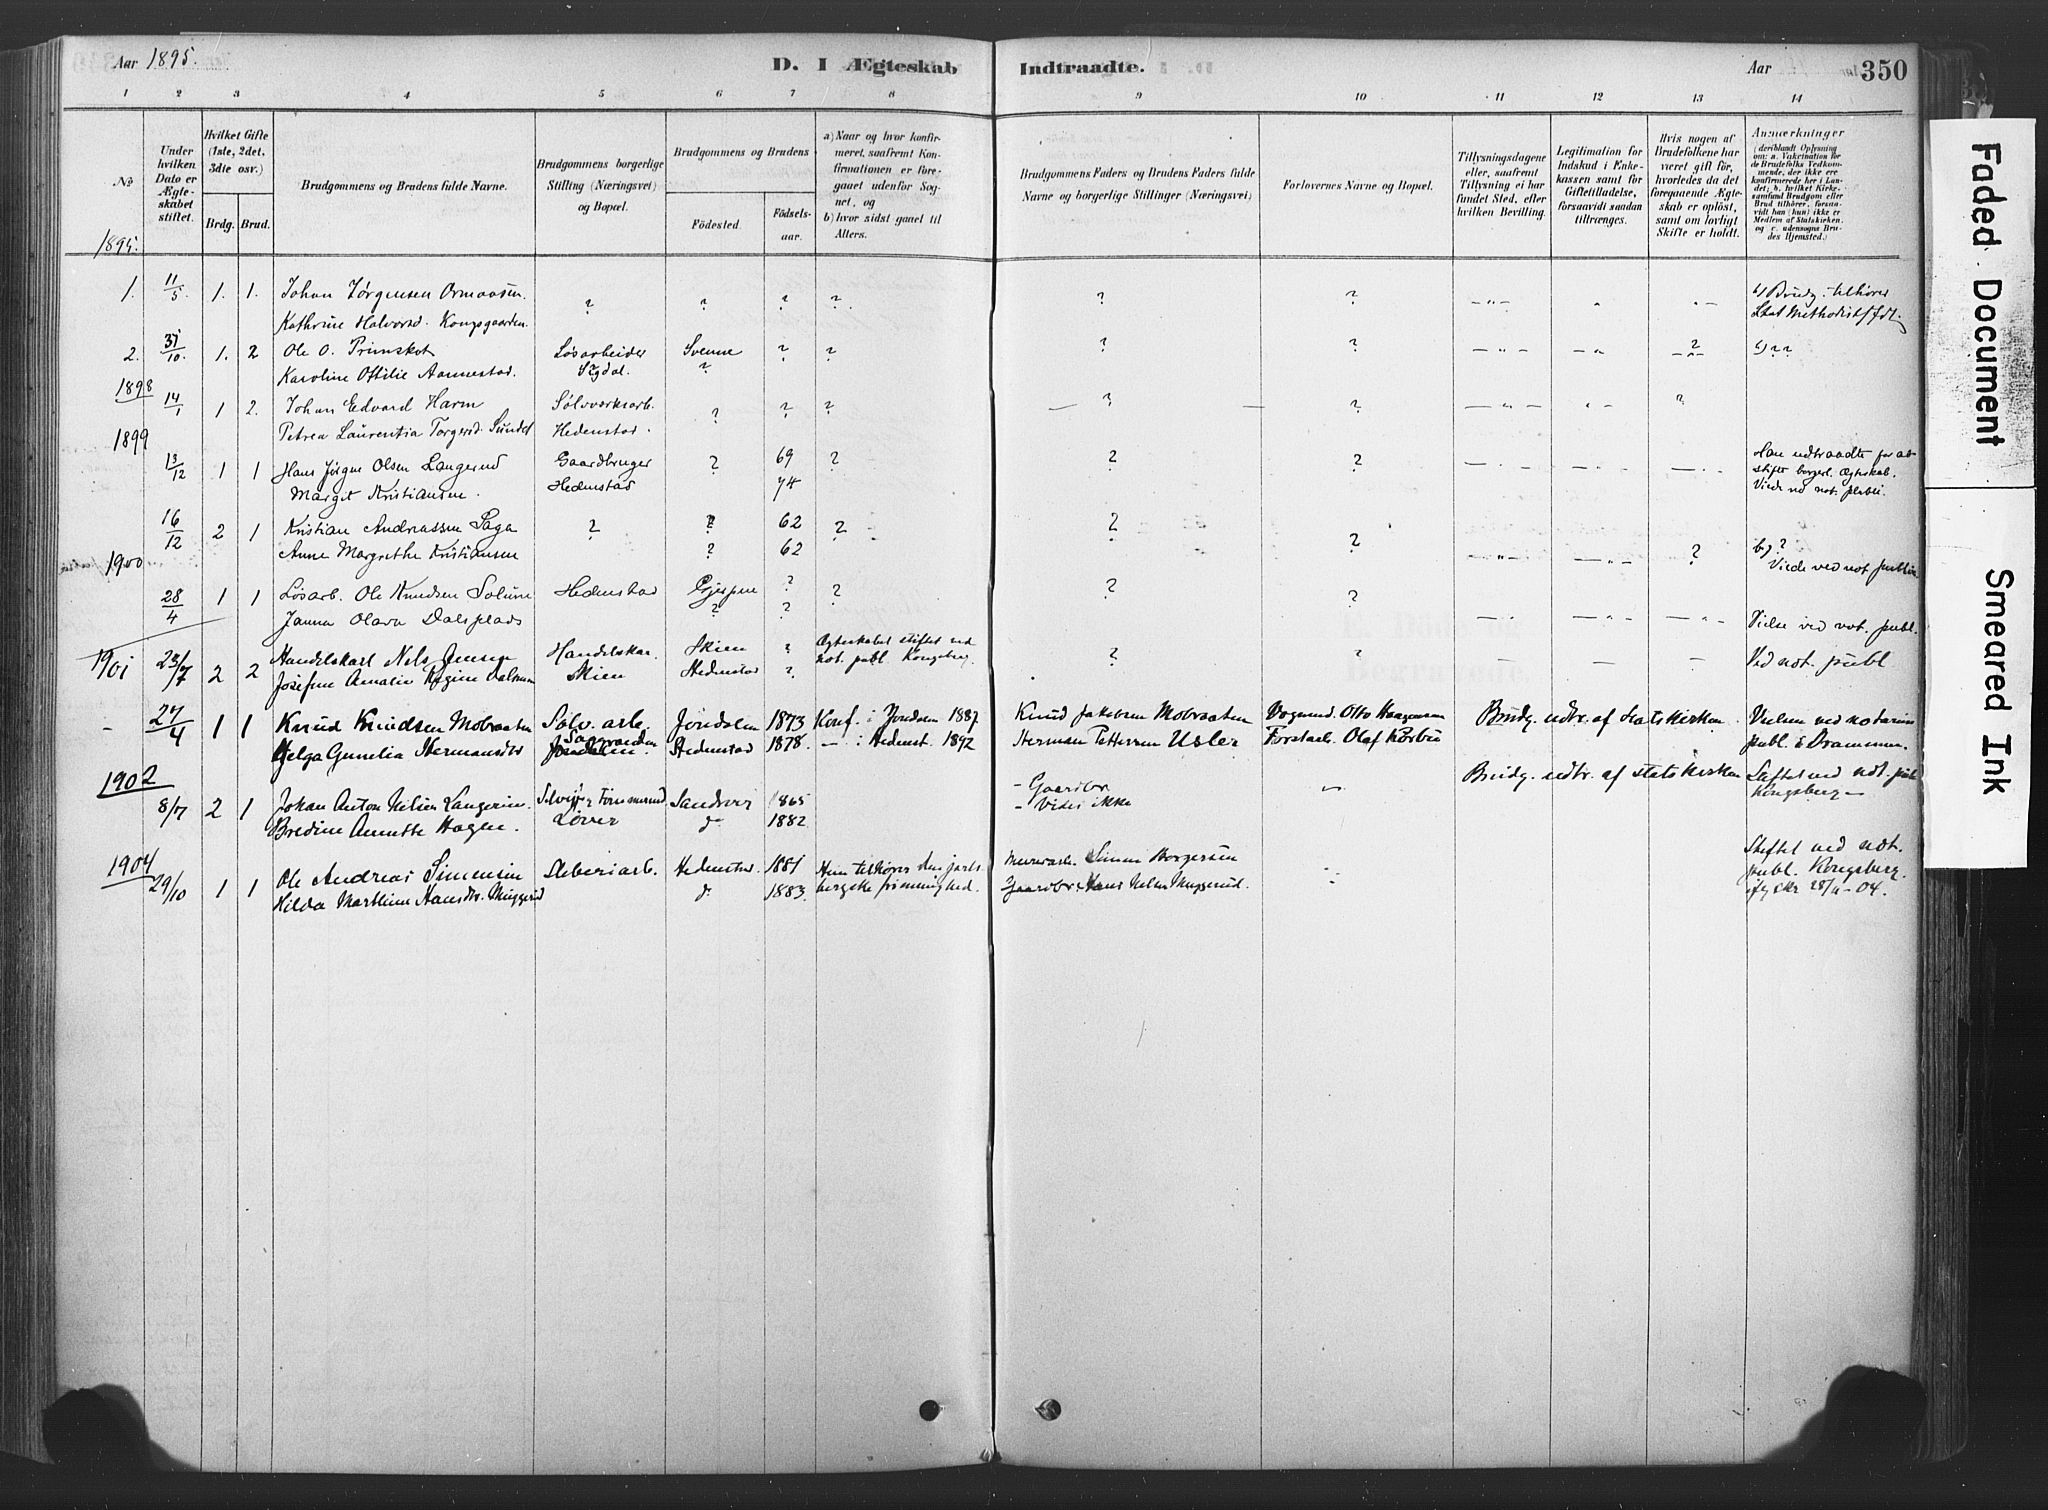 Aar 1895.
D. I Ægteskab Indtraadte.
Aar
350
1 2 3 4 5 6 7 8 9 10 11 12 13 14
No
Under hvilken Dato er Ægteskabet stiftet.
Hvilket Gifte (1ste, 2det, 3die osv.)
Brdg. Brud.
Brudgommens og Brudens fulde Navne.
Brudgommens borgerlige Stilling (Næringsvei) og Bopæl.
Brudgommens og Brudens
Födested.
Födsels-aar.
a) Naar og hvor konfirmeret, saafremt Konfirmationen er foregaaet udenfor Sognet, og
b) hvor sidst ganet til Alters.
Brudgommens Faders og Brudens Faders fulde Navne og borgerlige Stillinger (Næringsvei)
Forlovernes Navne og Bopæl.
Tillysningsdagene eller, saafremt Tillysning ei har fundet Sted, efter hvilken Bevilling.
Legitimation for Indskud i Enkekassen samt for Giftetilladelse, forsaavidt saadan tiltrænges.
Hvis nogen af Brudefolkene har været gift för, hvorledes da det foregaaende Ægteskab er oplöst, samt om lovligt Skifte er holdt.
Anmærkninger (deriblandt Oplysning om: a. Vakcination for de Brudefolks Vedkommende, der ikke ere konfirmerede her i Landet; b. hvilket Kirkesamfund Brudgom eller Brud tilhörer, forsaavidt han (hun) ikke er Medlem af Statskirken, og c. udensogns Brudes Hjemsted.)
1895.
1. 11/5 1. 1. Johan Jørgensen Ormaasen. ? ? ? ? ? ? b) Brudg. tilhører
Kathrine Halvorsd. Kongsgaarden. Methodist
2. 31/10. 1. 2 Ole O. Prinskot Løsarbeider Svenne ? ? ? ? ? ? ?
Karoline Ottilie Aannestad. Sigdal. ?
1898
14/1 1 2. Johan Edvard Harm Sølvverksarb. ? ? ? ? ? ?
Petrea Laurentia Torgersd. Sundet Hedenstad.
1899
13/12 1 1 Hans Jörgen Olsen Langerud Gaardbruger ? 69 ? ? ? Han udtraadte for at
Margit Kristiansen. Hedenstad 74 stifte borgerl. Ægteskab.
Viede ved not. publici.
16/12 2 1 Kristian Andreassen Saga ? ? 62 ? ? ? ? b) ?
Anne Margrethe Kristiansen ? 62 Viede ved not publici
1900
28/4 1 1 Løsarb. Ole Knudsen Solum Hedenstad Gjerpen ? ? ? ?
Janna Olava Dalsplads ? ? Vielse ved not. publ.
1901 23/7 2 2 Handelskarl Nils Jensen Handelskar. Skien ? Ægteskabet stiftet ved ? ? Ved not. publ
Josefine Amalie Regine Skien Hedenstad ? not. publ Kongsberg.
- 27/4 1 1 Knud Knudsen Mobraaten Sølv. arb. Jondalen 1873 Konf. i Jondalen 1887 Knud Jakobsen Mobraaten Otto Haagensen Brudg. udtr. af Statskirken. Vielsen ved notarius
Helga Gunelia Hermansdtr Jondalen. Hedenstad 1878. — i Hedenst. 1892 Herman Pettersen Usler Olaf Korbu publ. i Drammen.
1902 Brudg. udtr. af statskirken Stiftet ved not. publ
8/7 2 1 Johan Anton Nilsen Langerud. Sandsvær 1865 - Gaardbr. Kongsberg —
Bredine Annette Hagen. do 1882 - Vides ikke
1904
29/10 1 1 Ole Andreas Simensen Sliberiarb. Hedenstad 1881 Hun tilhører den jarlsbergske frimenighed. Simen Borgersen Stiftet ved not.
Hilda Martline Hansdtr. Muggerud do 1883. Gaardbr. Hans Nilsen Muggerud. publ. Kongsberg.
ifg skr 28/11-04.
Faded Document
Smeared Ink